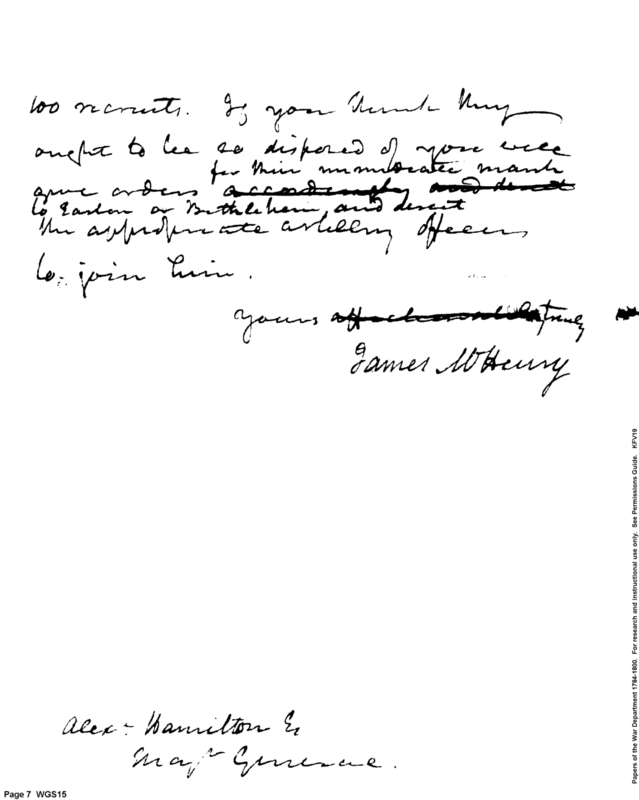 100 recruits. If you think they
ought to be so disposed of you will
for their immediate march
give orders accordingly and direct
to Easton or Bethlehem, and direct
the appropriate artillery officers
to join him.
Yours affectionately truly
James McHenry
Alexr Hamilton Es
Majr General.
Page 7 WGS15
Papers of the War Department 1784-1800. For research and instructional use only. See Permissions Guide. KFV19